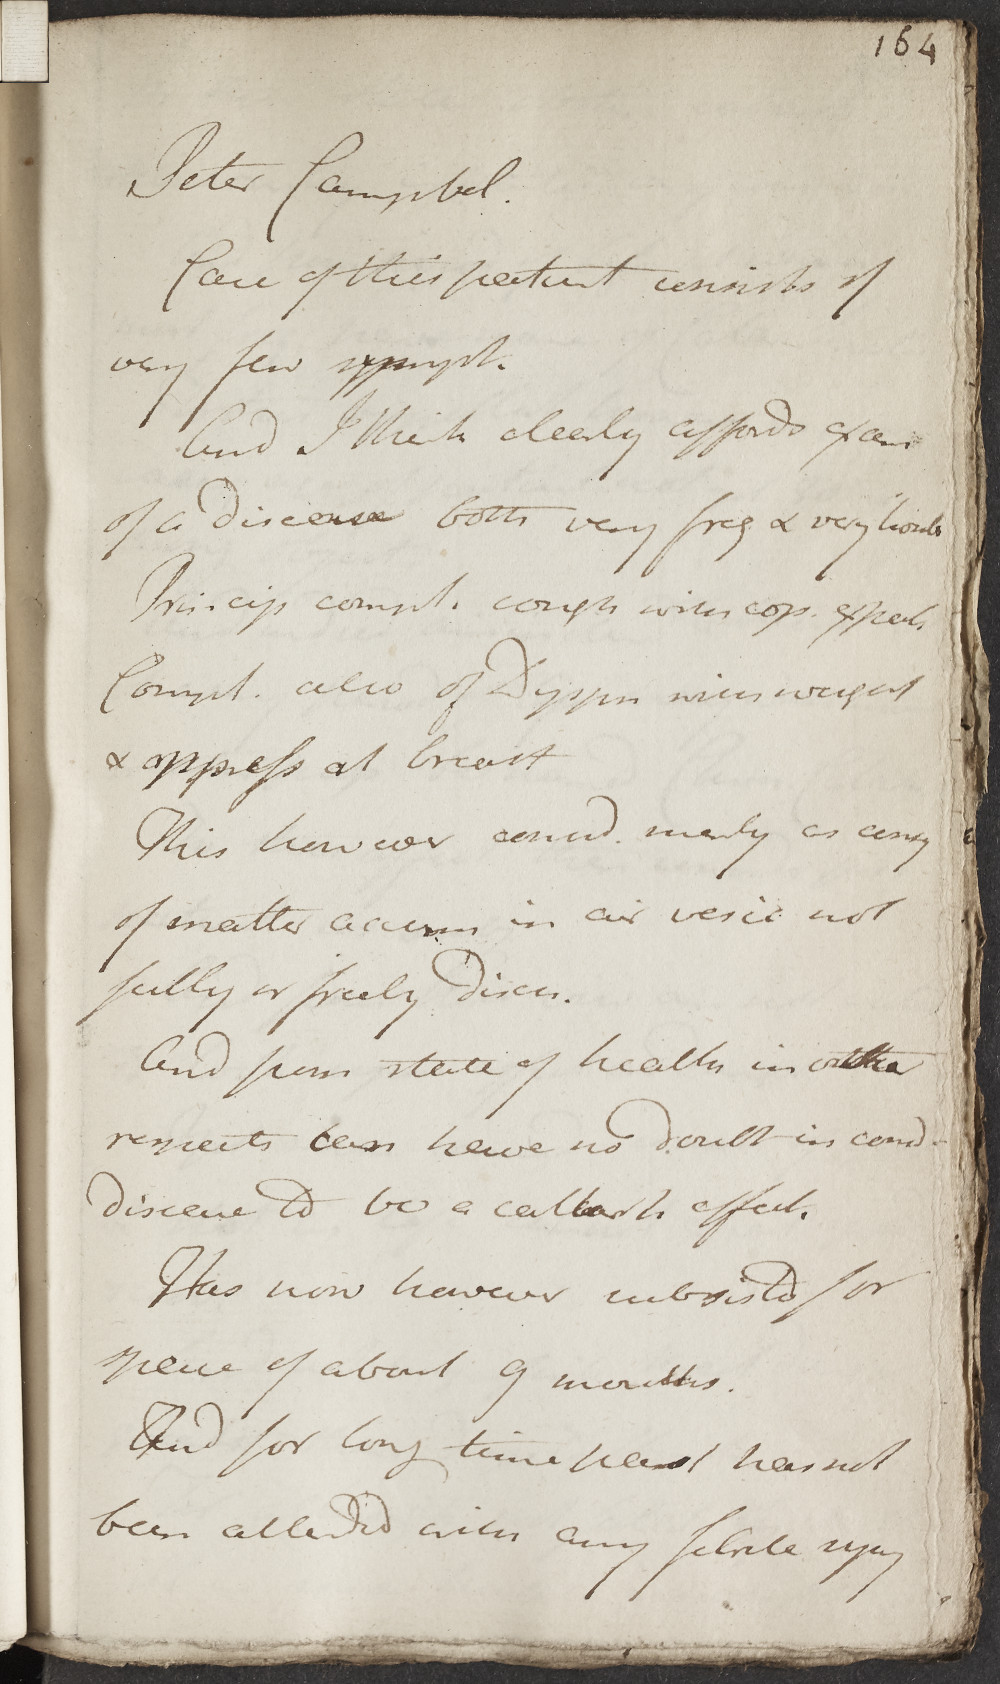 164
Peter Campbel.
Case of this patient consists of
very few sympt.
And I think clearly affords exam
of a disease both very freq & very
Princip compl. cough with cop. expect
Compl. also of Dyspn with weight
& oppress at breast
This however consid. merely as conseq
of matter accum in air vesic not
fully or freely disch.
And from state of health in other
respects can have no doubt in consid-
disease to be a catarrh affect.
Has now however subsisted for
space of about 9 months.
And for long time past has not
been attended with any febrile sym